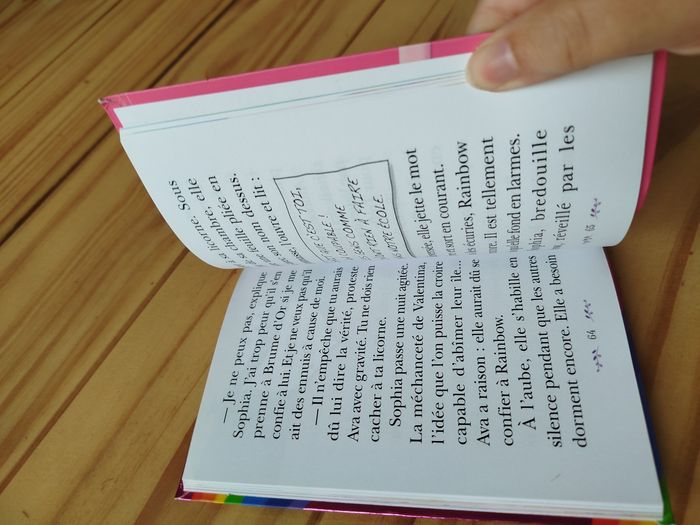 — Je ne peux pas, explique
Sophia. J'ai trop peur qu'il s'en
prenne à Brume d'Or si je me
confie à lui. Et je ne veux pas qu'il
ait des ennuis à cause de moi.
— Il n'empêche que tu aurais
dû lui dire la vérité, proteste
Ava avec gravité. Tu ne dois rien
cacher à ta licorne.
Sophia passe une nuit agitée.
La méchanceté de Valentina,
l'idée que l'on puisse la croire
capable d'abîmer leur île...
Ava a raison : elle aurait dû se
confier à Rainbow.
À l'aube, elle s'habille en
silence pendant que les autres
dorment encore. Elle a besoin
64
Sous
licorne, elle
chambre, en
pliée en
dessus.
l'ouvre et lit :
C'EST TOI,
COUPABLE !
COMME
RIEN À FAIRE
NOTRE ÉCOLE.
elle jette le mot
sort en courant.
écuries, Rainbow
Il est tellement
fond en larmes.
bredouille
réveillé par les
65